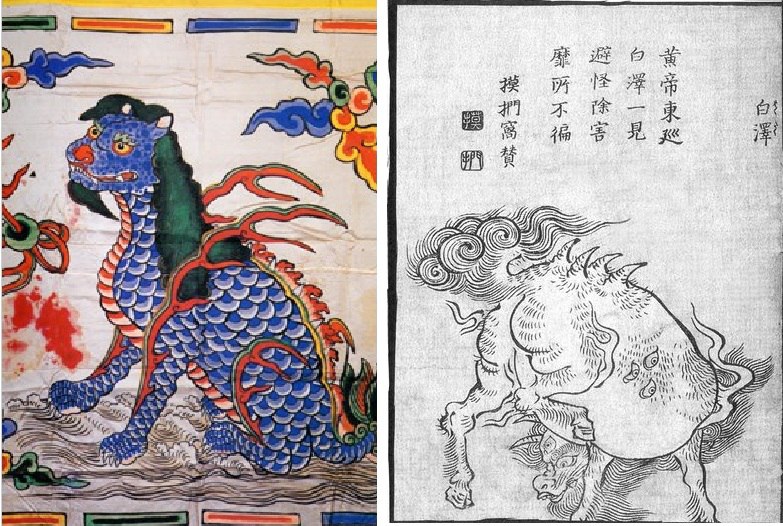 白澤
黄帝東巡
白澤一見
避怪除害
靡所不徧
摸捫窩賛
摸
捫